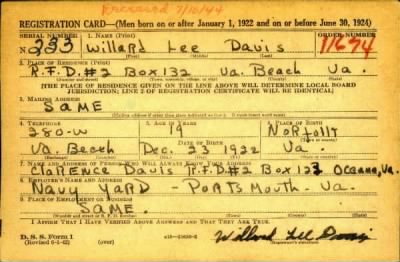 Received 7/16/44
REGISTRATION CARD—(Men born on or after January 1, 1922 and on or before June 30, 1924)
SERIAL NUMBER 1. NAME (Print) ORDER NUMBER
N 233 Willard Lee Davis 11674
2. PLACE OF RESIDENCE (Print)
R.F.D.#2 Box 132 Va. Beach Va.
[THE PLACE OF RESIDENCE GIVEN ON THE LINE ABOVE WILL DETERMINE LOCAL BOARD
JURISDICTION; LINE 2 OF REGISTRATION CERTIFICATE WILL BE IDENTICAL]
3. MAILING ADDRESS
SAME
4. TELEPHONE 5. AGE IN YEARS 6. PLACE OF BIRTH
280-W 19 Norfolk
Va. Beach Dec. 23 1922 Va
7. NAME AND ADDRESS OF PERSON WHO WILL ALWAYS KNOW YOUR ADDRESS
Clarence Davis R.F.D.#2 Box 123 Oceana, Va.
8. EMPLOYER'S NAME AND ADDRESS
Navy Yard - Portsmouth - Va.
9. PLACE OF EMPLOYMENT OR BUSINESS
SAME.
I AFFIRM THAT I HAVE VERIFIED ABOVE ANSWERS AND THAT THEY ARE TRUE.
D. S. S. Form 1
(Revised 6-1-42) (over)
Willard Lee Davis